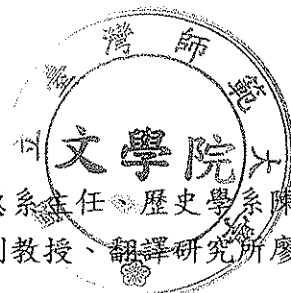 立臺灣師範大
文學院
系主任、歷史學系陳
教授、翻譯研究所廖